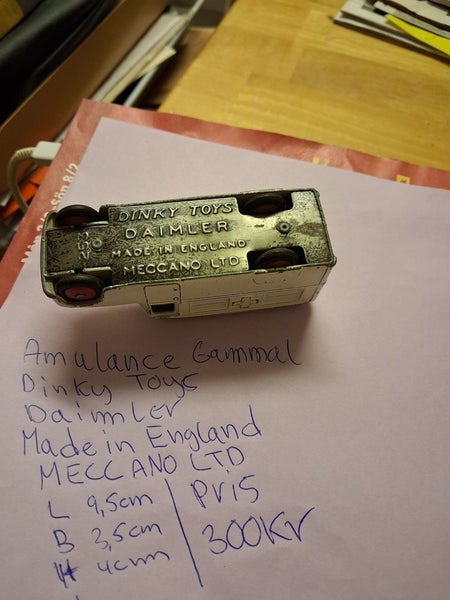 DINKY TOYS
DAIMLER
MADE IN ENGLAND
MECCANO LTD
Amulance Gammal
Dinky Toys
Daimler
Made in England
MECCANO LTD
L 9,5cm
B 3,5cm
H 4cm
Pris
300Kr